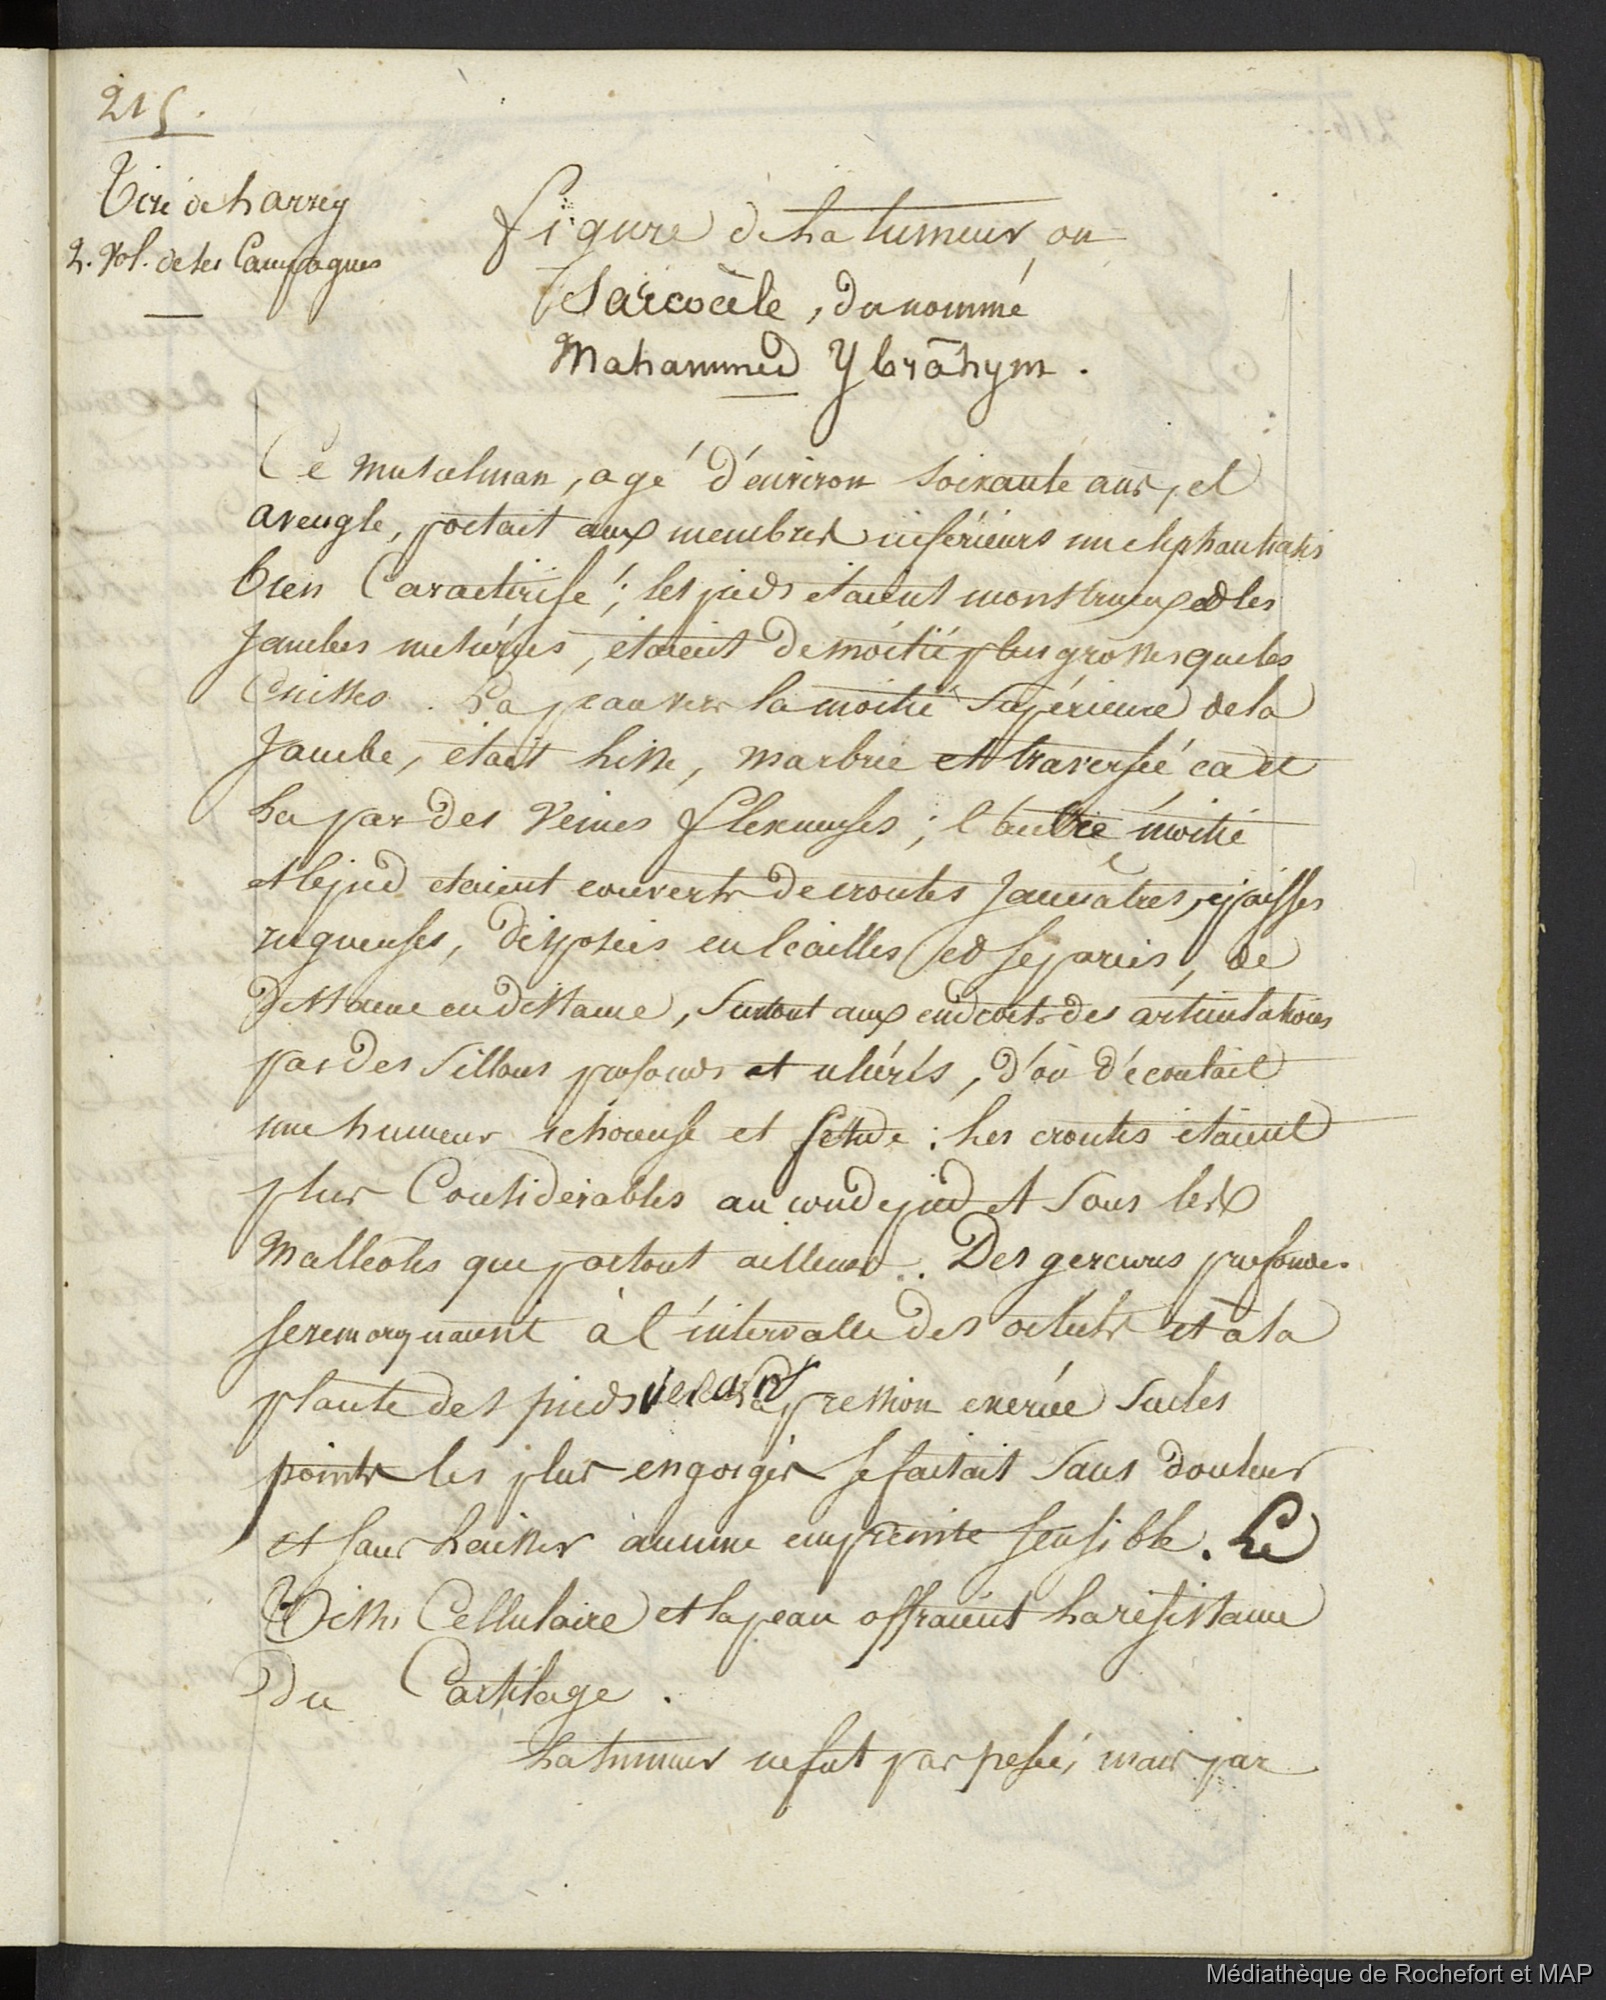 215.
Tiré de Larrey
2. vol. de ses Campagnes
figure de La tumeur, ou
Sarcocèle, du nommé
Mahammed Ybrâhym.
Ce musulman, agé d'environ Soixante ans, et
aveugle, portait aux membres inférieurs un elephantiasis
bien Caractérisé; les pieds étaient monstrueux et les
Jambes mesurées, étaient de moitié plus grosses que les
Cuisses. La peau vers la moitié Supérieure de la
Jambe, était Lisse, marbrée et traversée ça et
La par des Veines flexueuses; l'autre moitié
et le pied etaient couverts de croutes Jaunatres, epaisses
rugueuses, disposées en écailles et separées, de
Distance en distance, Surtout aux endroits des articulations
par des Sillons profonds et ulcérés, d'où découlait
une humeur ichoreuse et fétide: Les croutes étaient
plus Considerables au coudepied et Sous les
Malléoles que partout ailleurs. Des gercures profondes
se remarquaient à l'intervalle des orteils et à la
plante des pieds pression exercée Sur les
points les plus engorgés se faisait Sans douleur
et sans Laisser aucune empreinte sensible. Le
Tissu Cellulaire et la peau offraient La résistance
Du Cartilage.
La tumeur ne fut pas pesée, mais par
Médiathèque de Rochefort et MAP